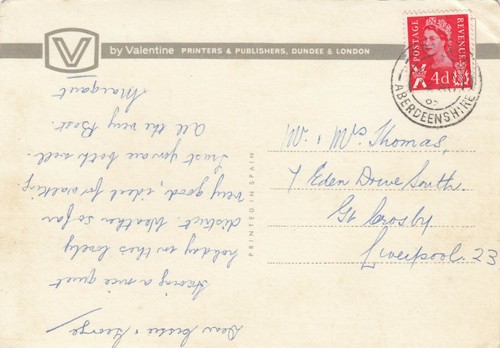 V by Valentine PRINTERS & PUBLISHERS, DUNDEE & LONDON
POSTAGE REVENUE
4d
ABERDEENSHIRE
PRINTED IN SPAIN
Mr. & Mrs Thomas,
7 Eden Drive South.
Gt Crosby
Liverpool. 23
Dear Jessie & George
Having a nice quiet
holiday in this lovely
district. Weather so far
very good, ideal for walking
Trust you are both well.
All the very Best.
Margaret